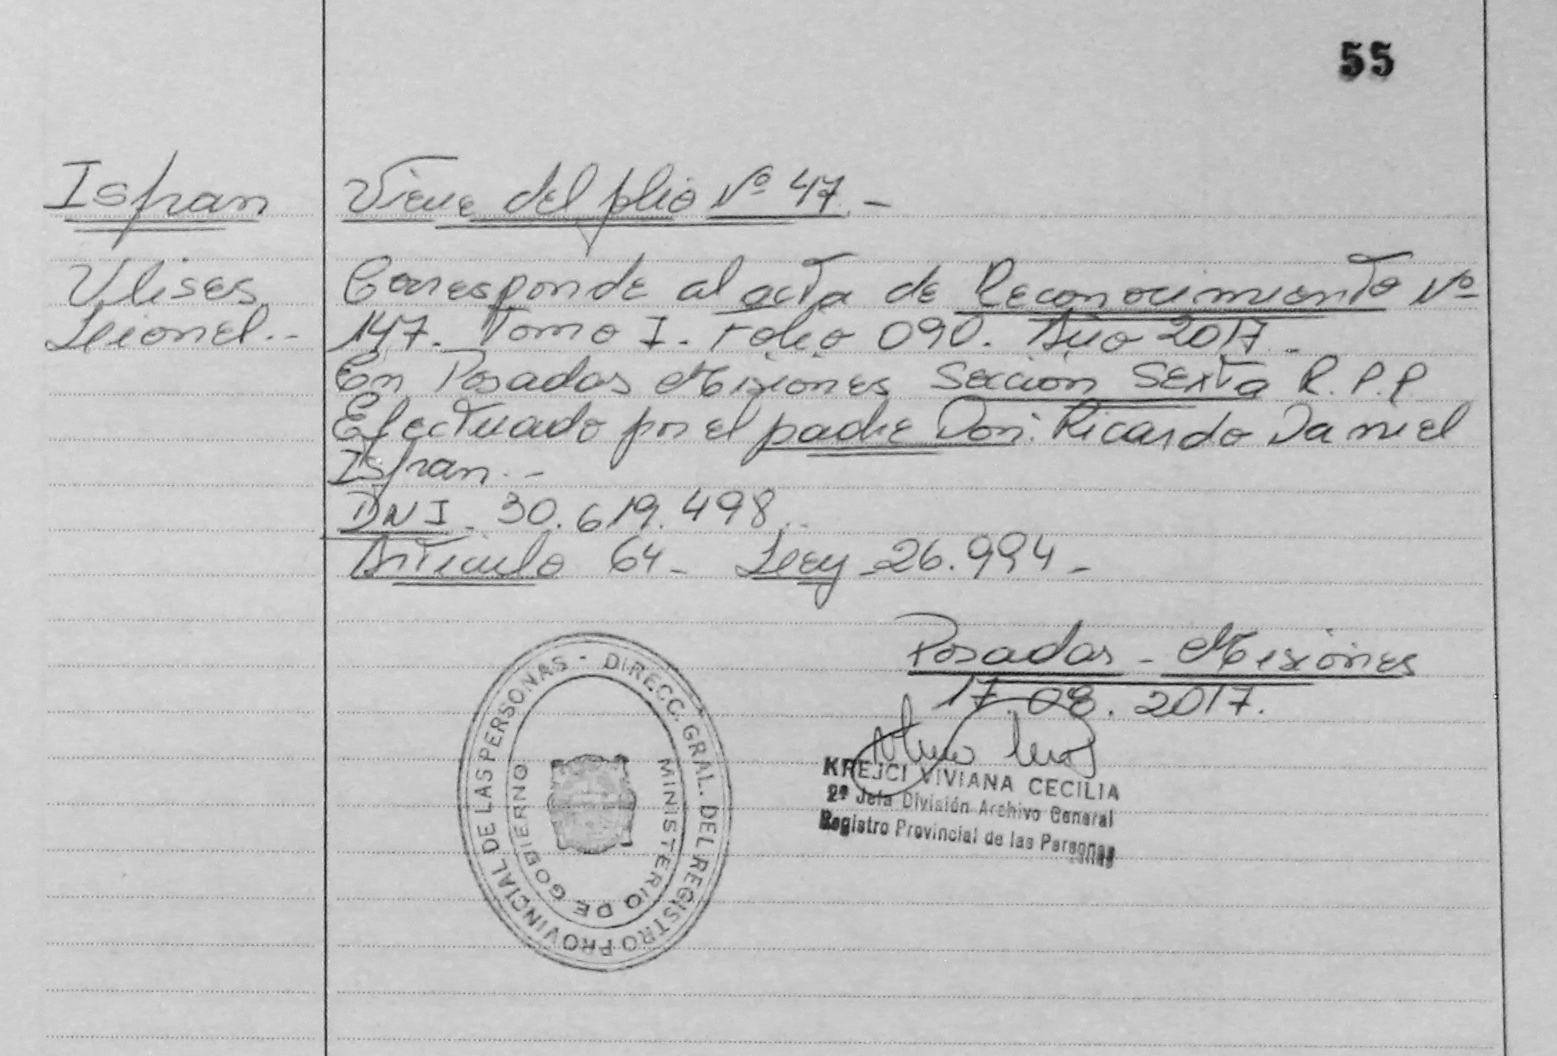 55
Isfran
Ulises
Lionel.-
Viene del folio Nº 47.-
Corresponde al acta de Reconocimiento Nº
147. Tomo I. Folio 090. Año 2017.-
En Posadas Misiones Sección Sexta R.P.P.
Efectuado por el padre Don: Ricardo Daniel
Isfran.-
DNI. 30.619.498..
Artículo 64- Ley 26.994-
Posadas - Misiones
17.08.2017.
KREJCI VIVIANA CECILIA
2º Jefa División Archivo General
Registro Provincial de las Personas
DIRECC. GRAL. DEL REGISTRO PROVINCIAL DE LAS PERSONAS -
MINISTERIO DE GOBIERNO